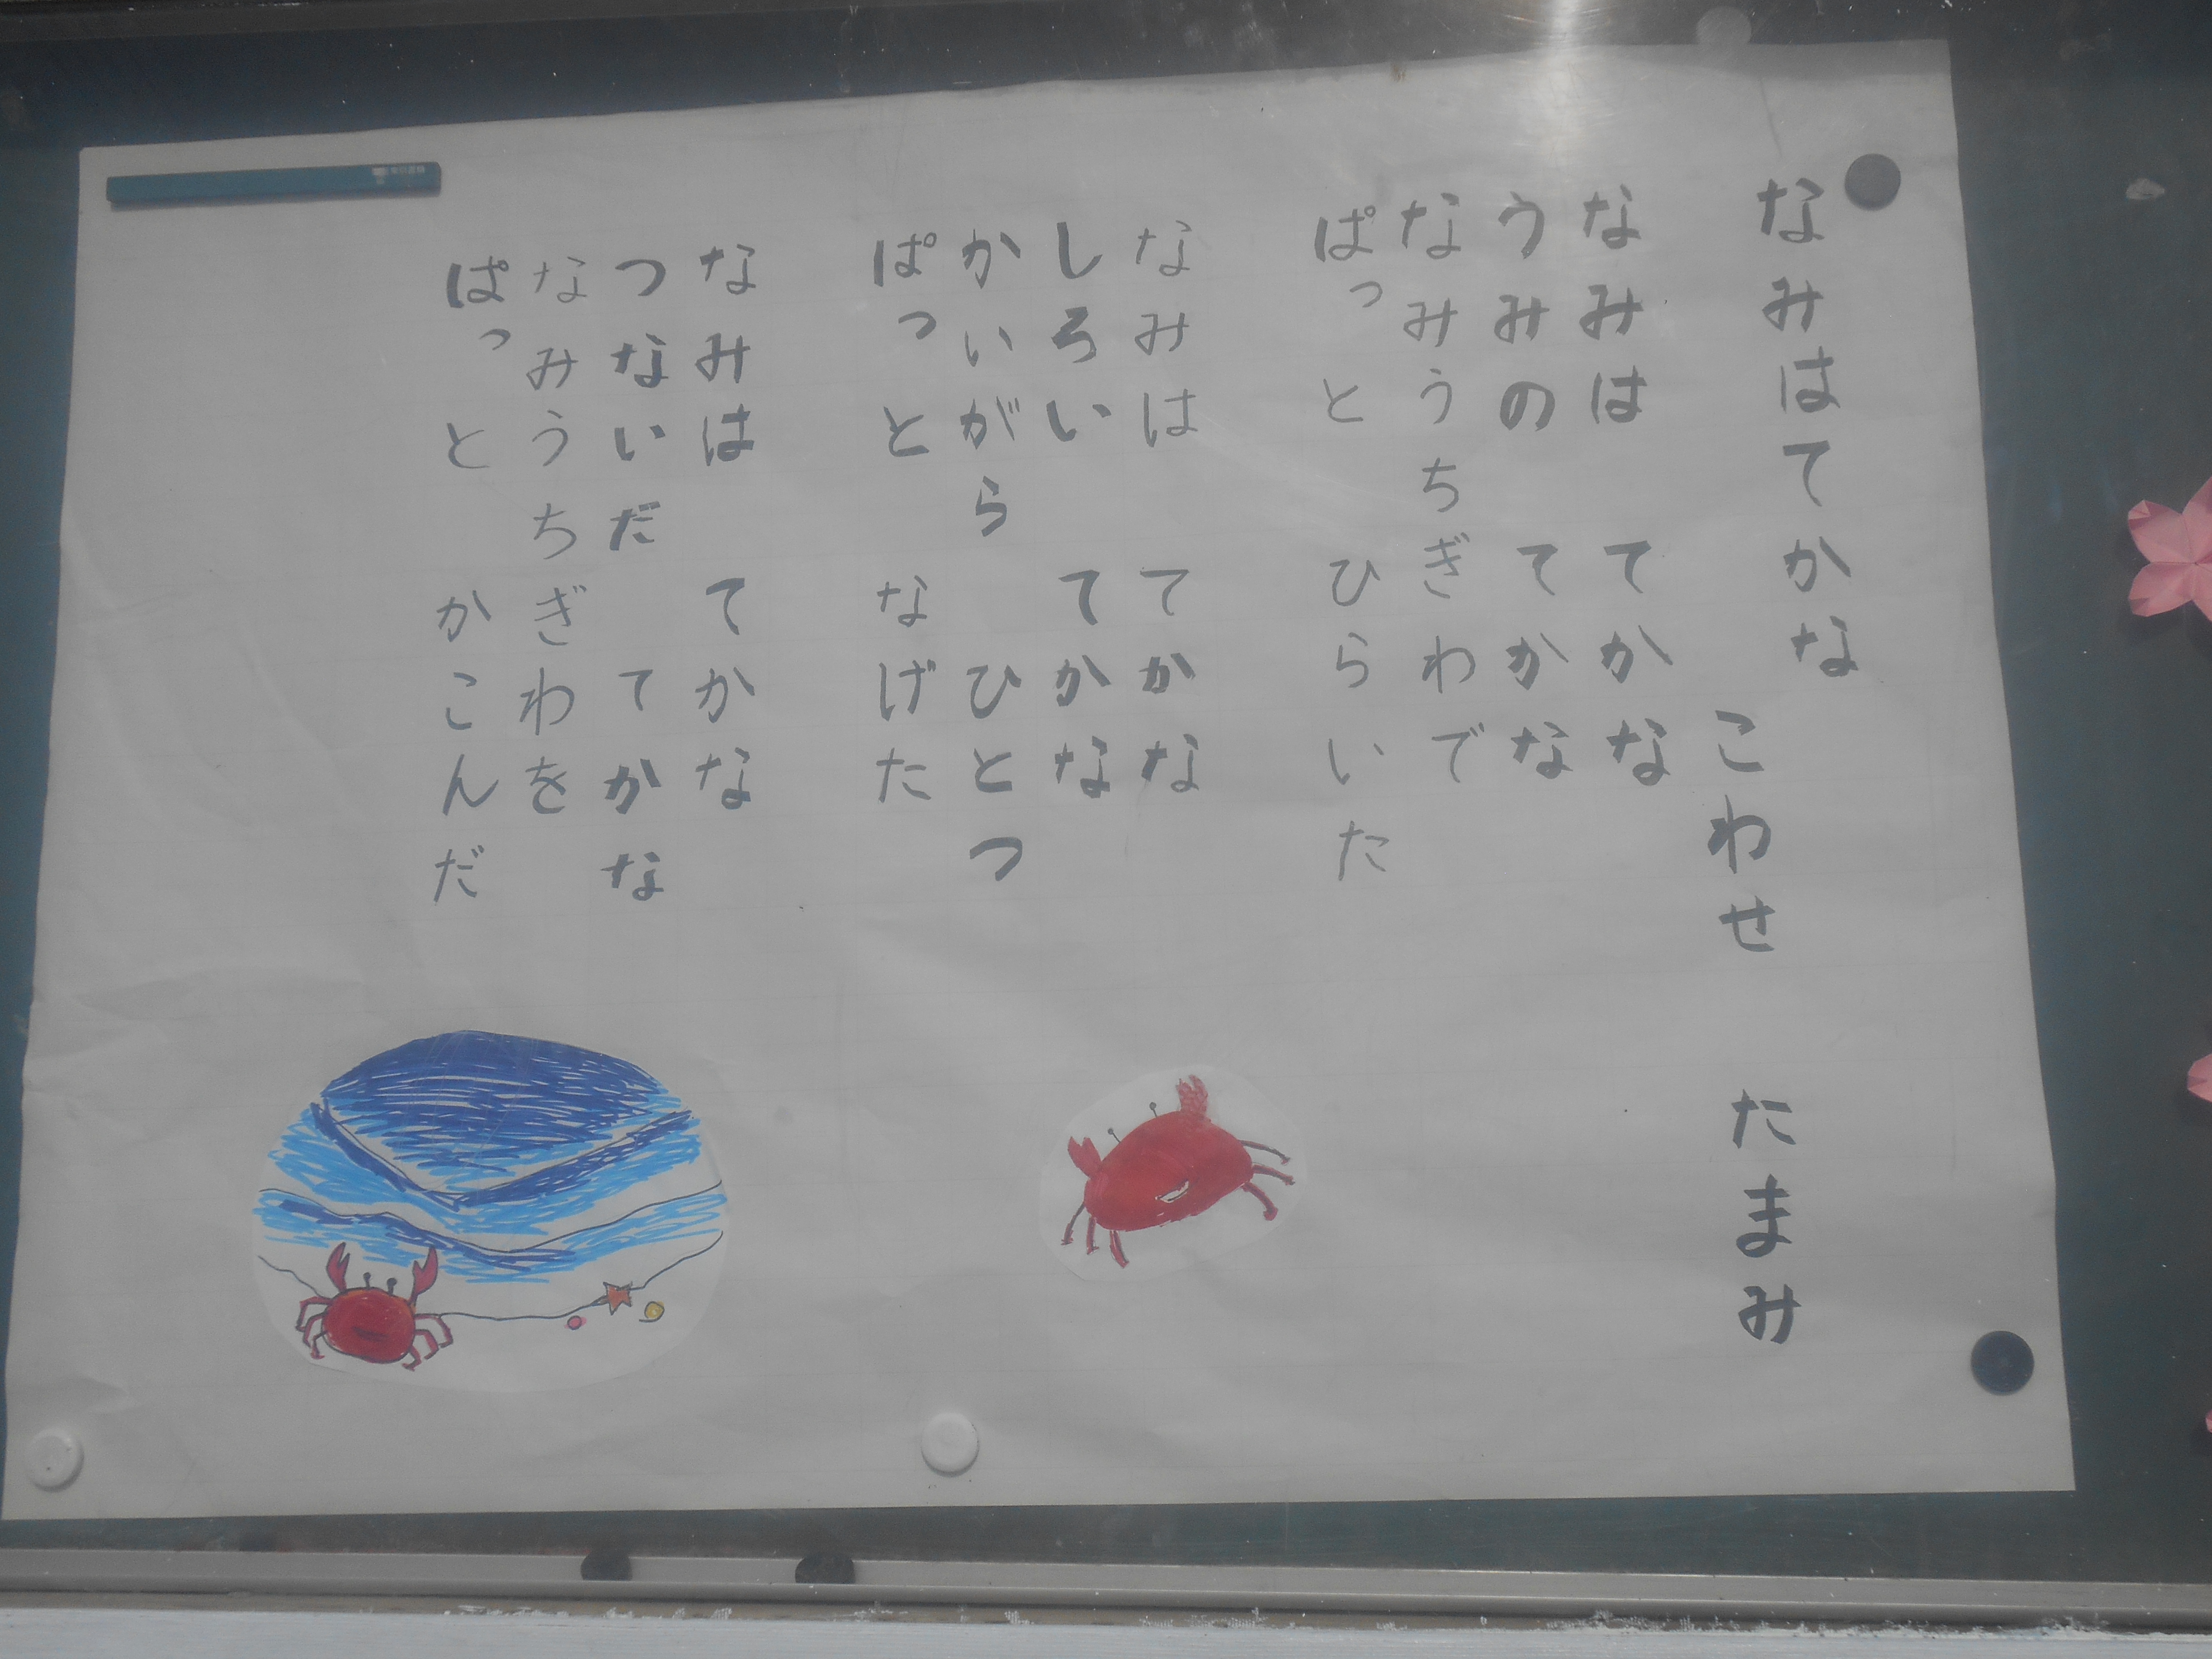 なみはてかな
こわせ　たまみ
なみは　てかな
うみの　てかな
なみうちぎわで
ぱっと　ひらいた
なみは　てかな
しろい　てかな
かいがら　ひとつ
ぱっと　なげた
なみは　てかな
つないだ　てかな
なみうちぎわを
ぱっと　かこんだ